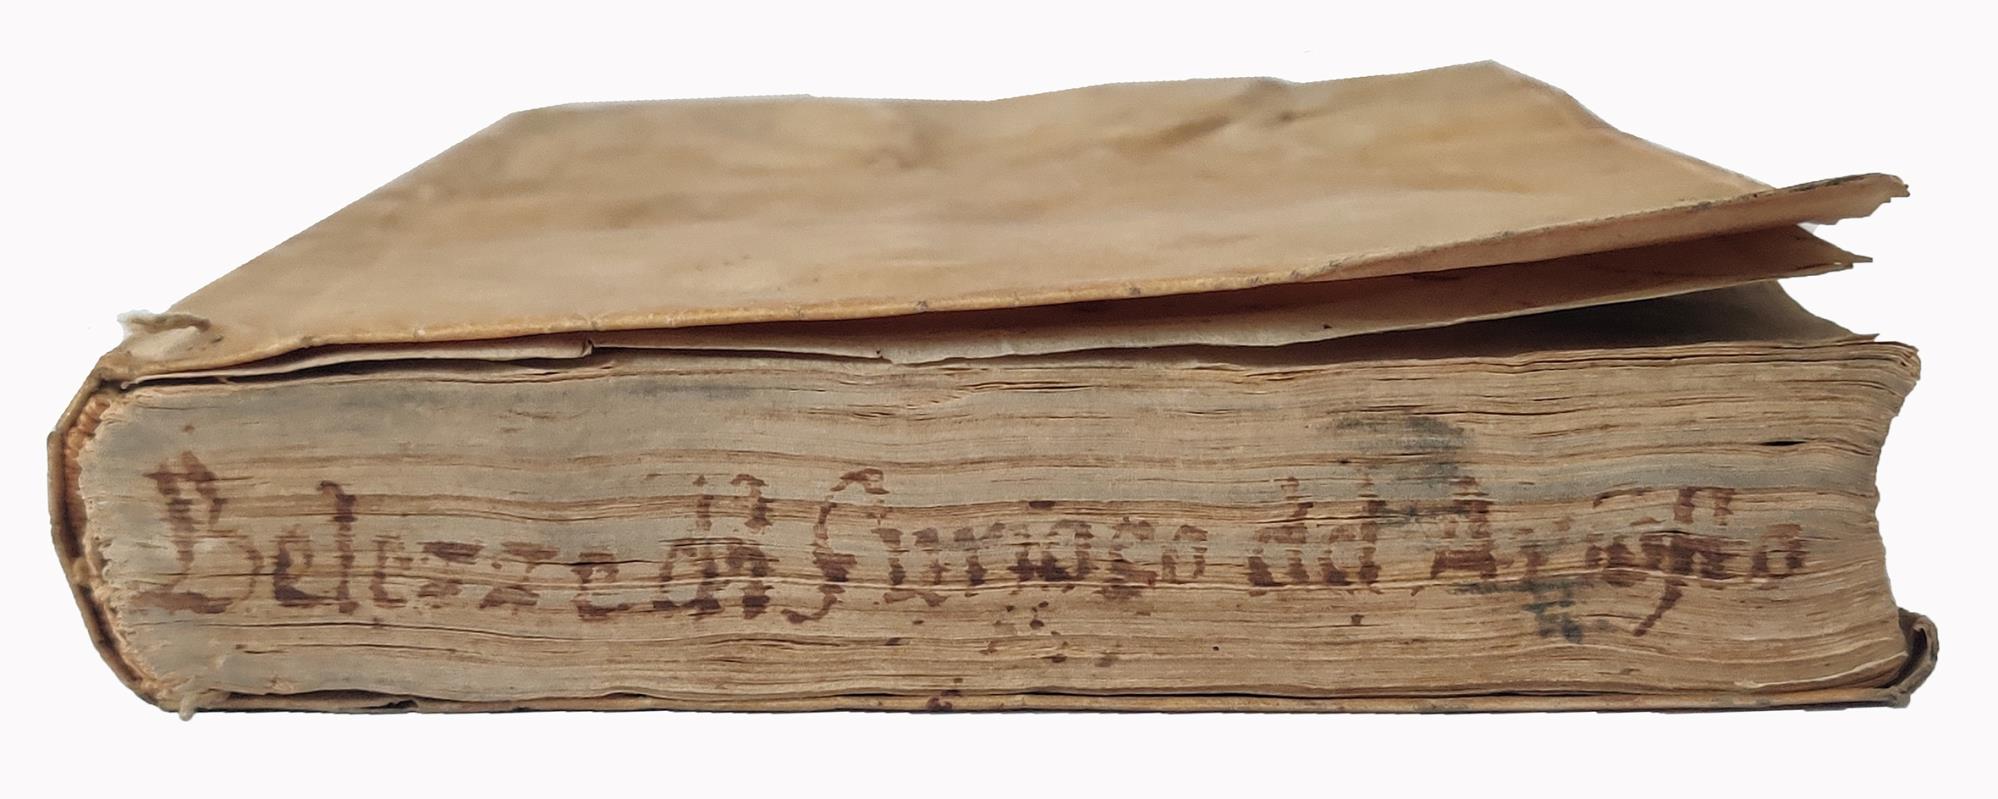 Belezze del Furioso del Ariosto